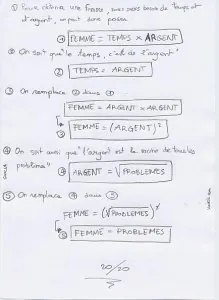 ① Pour obtenir une femme, nous avons besoin de temps et
d'argent, on peut donc poser
① FEMME = TEMPS × ARGENT
② On sait que "le temps, c'est de l'argent"
② TEMPS = ARGENT
③ On remplace ② dans ①
FEMME = ARGENT × ARGENT
③ FEMME = (ARGENT)²
④ On sait aussi que "l'argent est la racine de tous les
problèmes"
④ ARGENT = √PROBLEMES
⑤ On remplace ④ dans ③
FEMME = (√PROBLEMES)²
⑤ FEMME = PROBLEMES
20/20